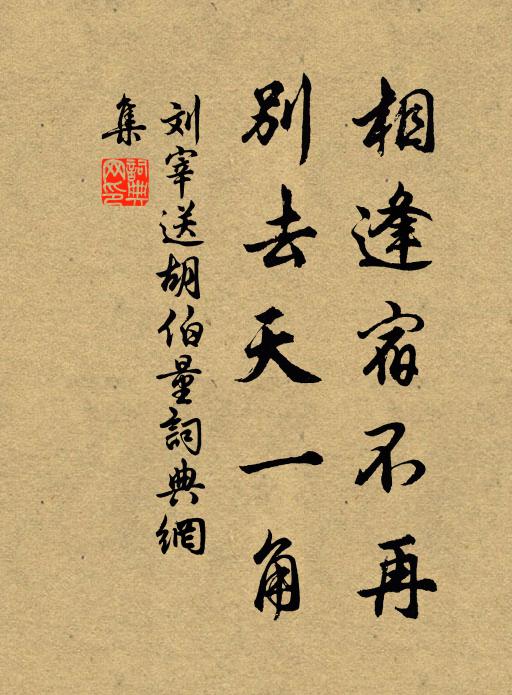 相逢宿不再
别去天一角
刘宰送胡伯量詞典網
集
詞典网印